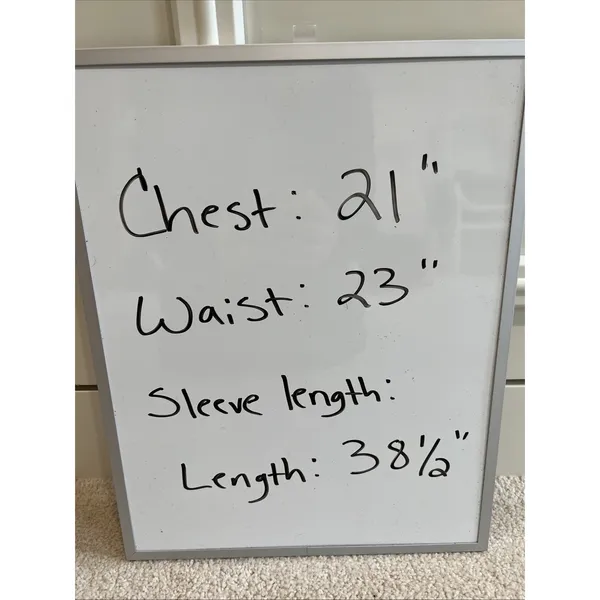 Chest: 21"
Waist: 23"
Sleeve length:
Length: 38½"